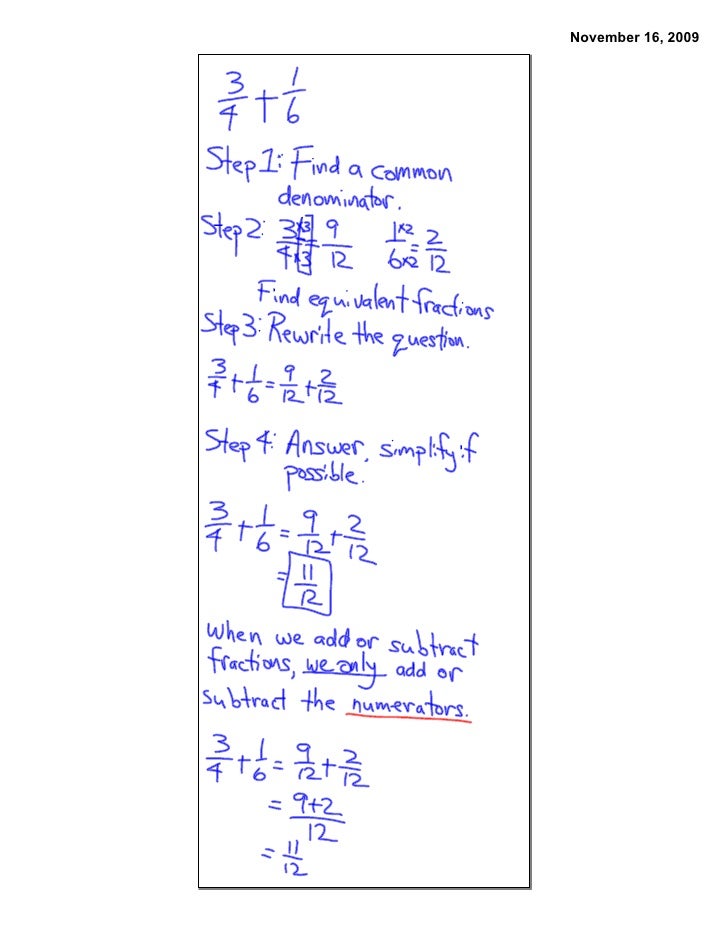 November 16, 2009
3/4 + 1/6
Step 1: Find a common
denominator.
Step 2: 3×3/4×3 = 9/12 1×2/6×2 = 2/12
Find equivalent fractions
Step 3: Rewrite the question.
3/4 + 1/6 = 9/12 + 2/12
Step 4: Answer, simplify if
possible.
3/4 + 1/6 = 9/12 + 2/12
= 11/12
When we add or subtract
fractions, we only add or
subtract the numerators.
3/4 + 1/6 = 9/12 + 2/12
= 9+2/12
= 11/12